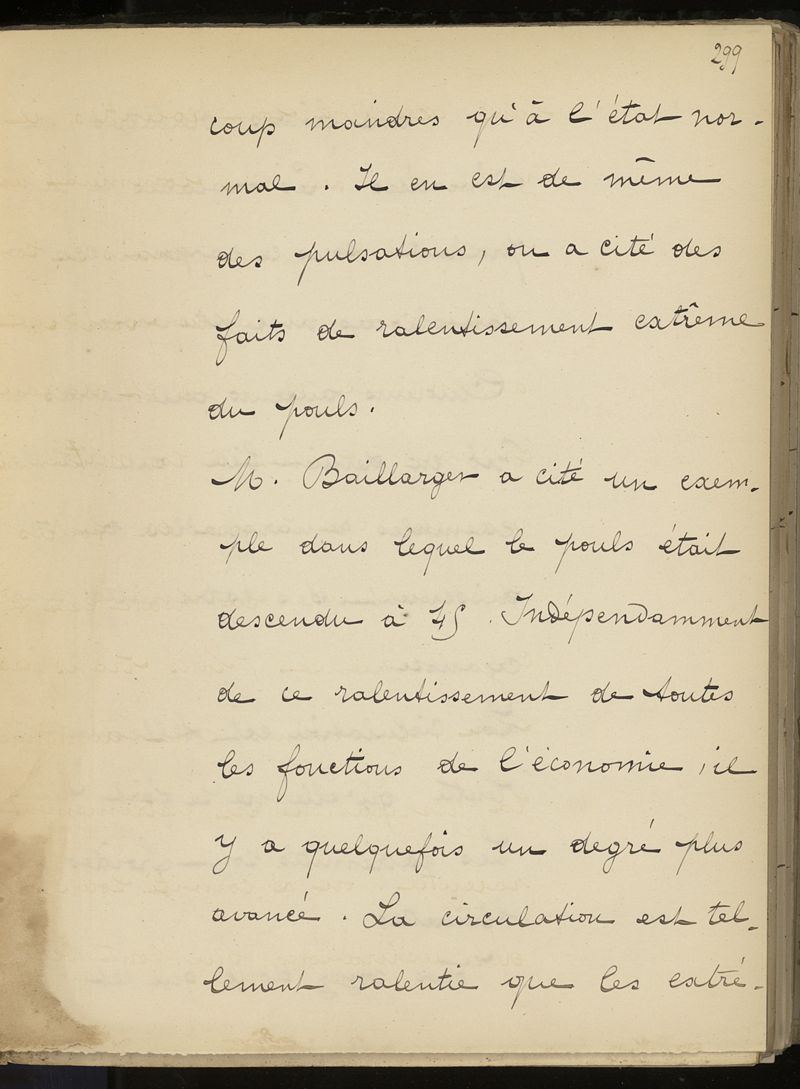 299
coup moindres qu'à l'état nor-
mal. Il en est de même
des pulsations, on a cité des
faits de ralentissement extrême
du pouls.
M. Baillarger a cité un exem-
ple dans lequel le pouls était
descendu à 45. Indépendamment
de ce ralentissement de toutes
les fonctions de l'économie, il
y a quelquefois un degré plus
avancé. La circulation est tel-
lement ralentie que les extré-